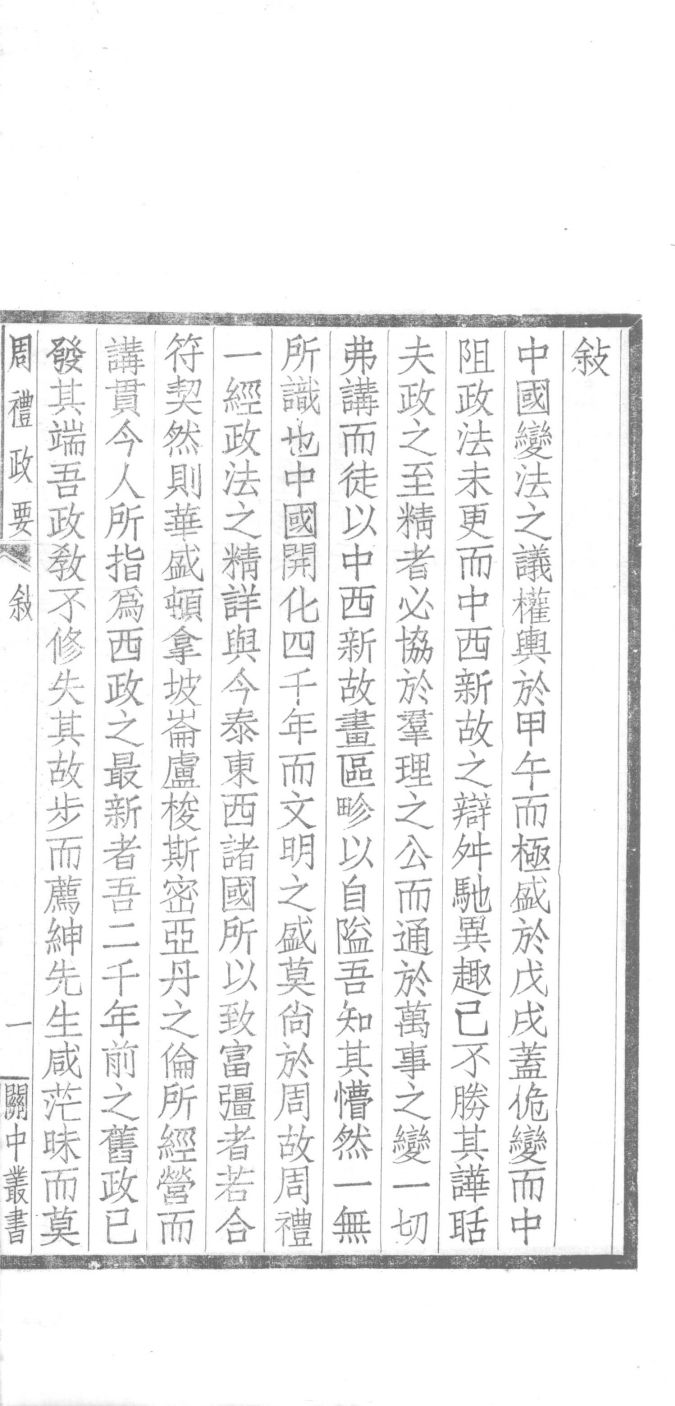 敍
中國變法之議權輿於甲午而極盛於戊戌蓋佹變而中
阻政法未更而中西新故之辯舛馳異趣已不勝其譁聒
夫政之至精者必協於羣理之公而通於萬事之變一切
弗講而徒以中西新故畫區畛以自隘吾知其懵然一無
所識也中國開化四千年而文明之盛莫尙於周故周禮
一經政法之精詳與今泰東西諸國所以致富彊者若合
符契然則華盛頓拿坡崙盧梭斯密亞丹之倫所經營而
講貫今人所指爲西政之最新者吾二千年前之舊政已
發其端吾政敎不修失其故步而薦紳先生咸茫昧而莫
周禮政要 敍 一 關中叢書